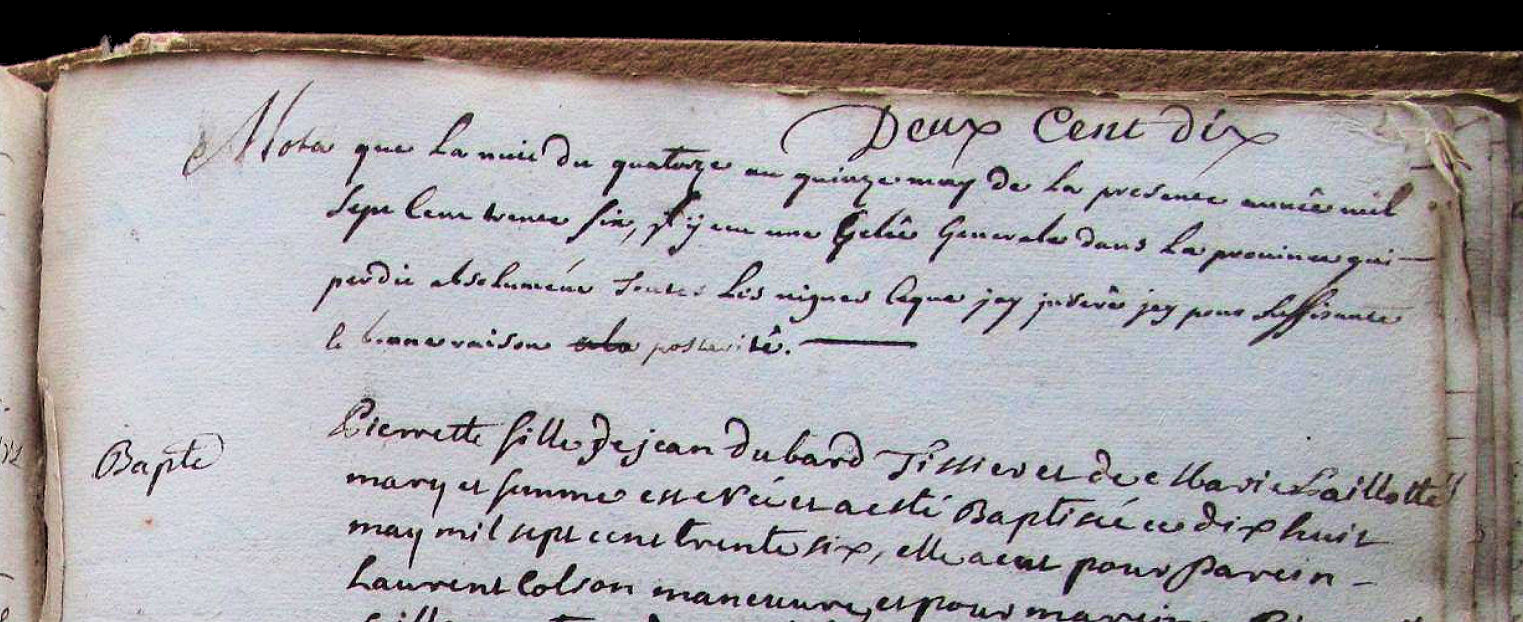 Deux Cent dix
Nota que La nuit du quatorze au quinze may de La presente année mil
Sept Cent trente six, il y eut une Gelée Generale dans La province qui
perdit absolument Toutes Les vignes Ceque jay inseré icy pour Suffisante
& bonne raison a la posterité.
Bapte
Pierrette fille de jean Dubard Tissier et de Marie Laillotte
mary et femme est Née et a esté Baptisée ce dix huit
may mil sept cent trente six, elle a eut pour Parein
Laurent Colson maneuvre, et pour mareine
fille